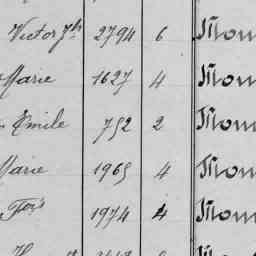 Victor Jh 2794 6 Mon
Marie 1627 4 Mon
Emile 752 2 Mon
Marie 1965 4 Mon
Fçois 1974 4 Mon